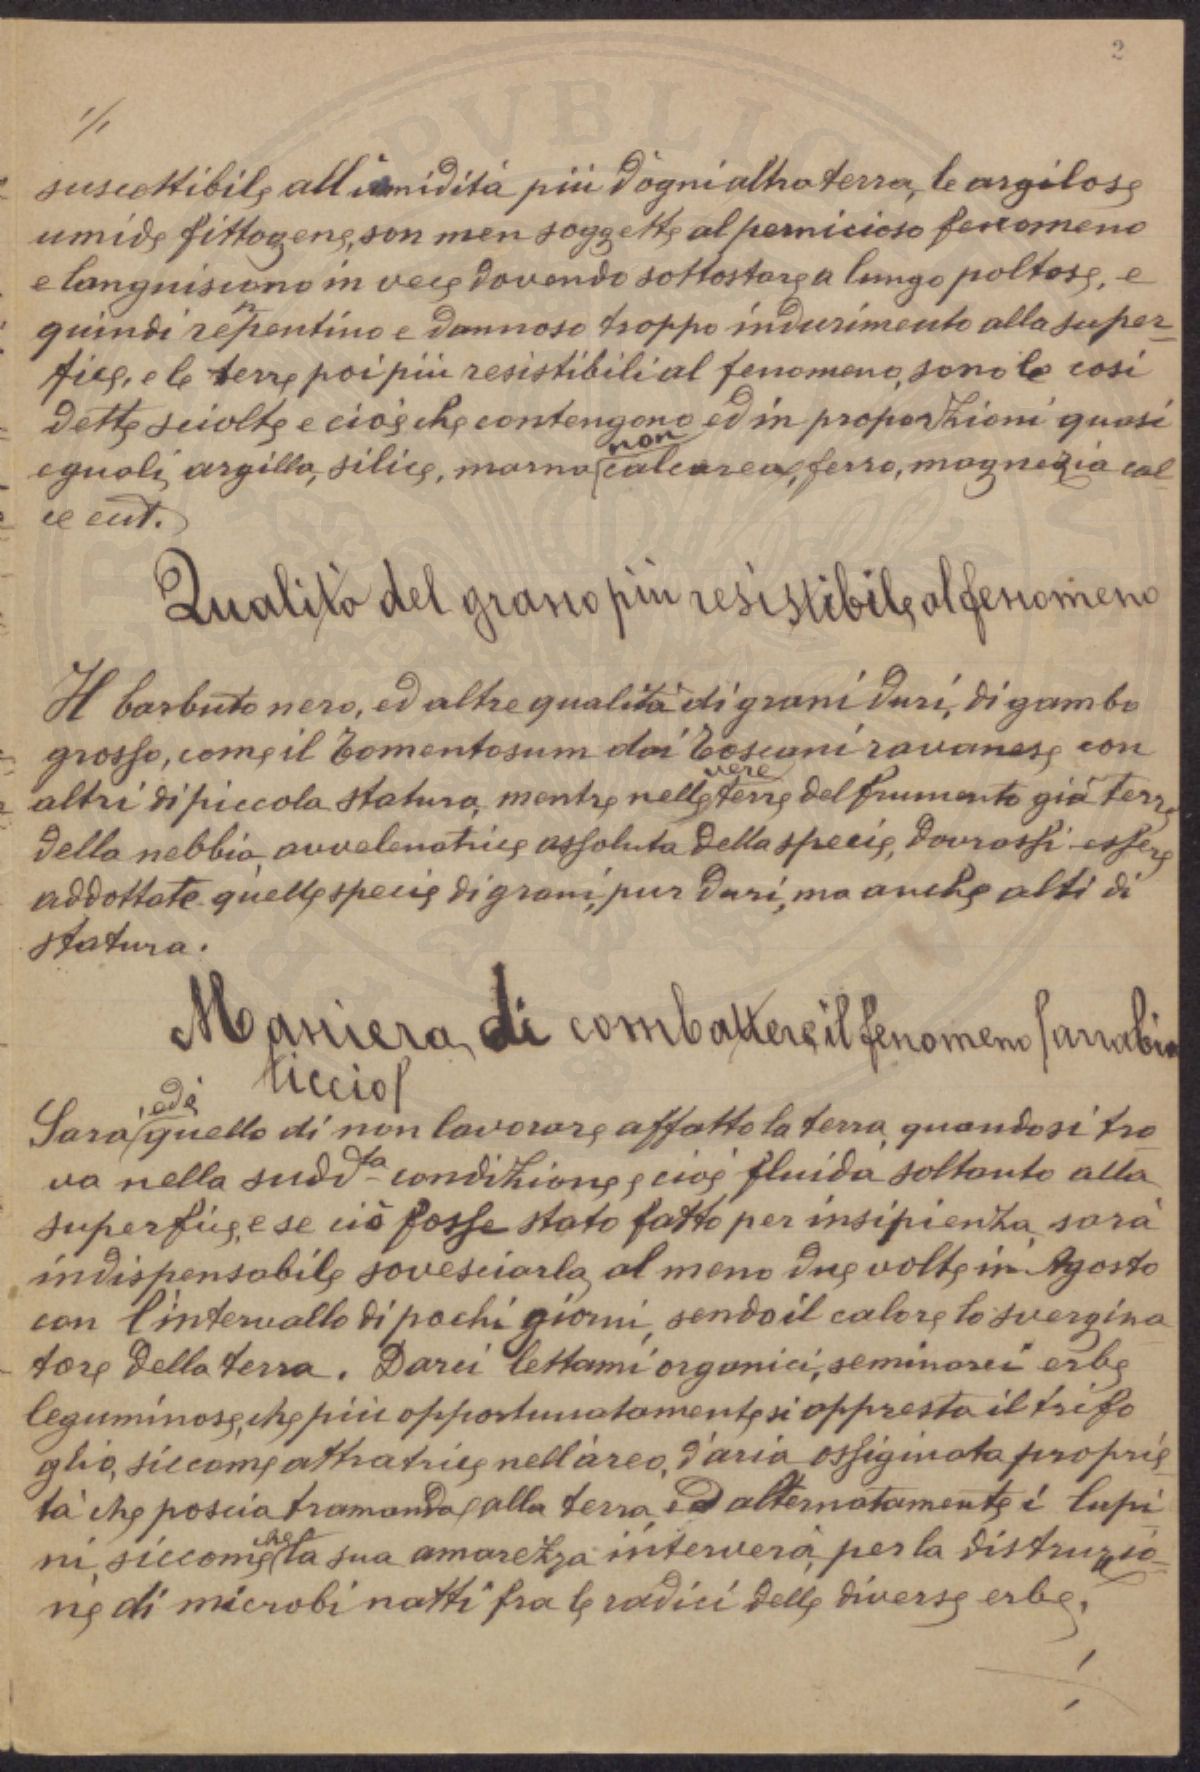 2
1/1
suscettibile all'umidità più d'ogni altra terra, le argilose
umide fittogene, son men soggette al pernicioso fenomeno
e languiscono in vece dovendo sottostare a lungo poltose, e
quindi repentino e dannoso troppo indurimento alla super-
ficie, e le terre poi più resistibili al fenomeno, sono le così
dette sciolte e cioè che contengono ed in proporzioni quasi
eguali, argilla, silice, marna non calcarea, ferro, magnezia cal-
ce ecct.
Qualità del grano più resistibile al fenomeno
Il barbuto nero, ed altre qualità di grani duri, di gamba
grossa, come il Tomentosum dai Toscani ravanese con
altri di piccola statura, mentre nelle vere terre del frumento già terre
della nebbia, avvelenatrice assoluta della specie, dovrassi essere
addottate quelle specie di grani, pur duri, ma anche alti di
statura.
Maniera di combattere il fenomeno /arrabia
ticcio/
Sarà, ed è quello di non lavorare affatto la terra, quando si tro
va nella sudd.ta condizione, e cioè fluida soltanto alla
superficie, e se ciò fosse stato fatto per insipienza, sarà
indispensabile sovesciarla, al meno due volte in Agosto
con l'intervallo di pochi giorni, sendo il calore lo svergina
tore della terra. Darci lettami organici, seminarci erbe
leguminose, che più opportunatamente si appresta il trifo
glio, siccome attratrice nell'area, d'aria ossiginata proprie
tà che poscia tramanda alla terra, ed alternatamente i lupi
ni, siccome che la sua amarezza interverà, per la distruzio-
ne di microbi natti fra le radici delle diverse erbe,